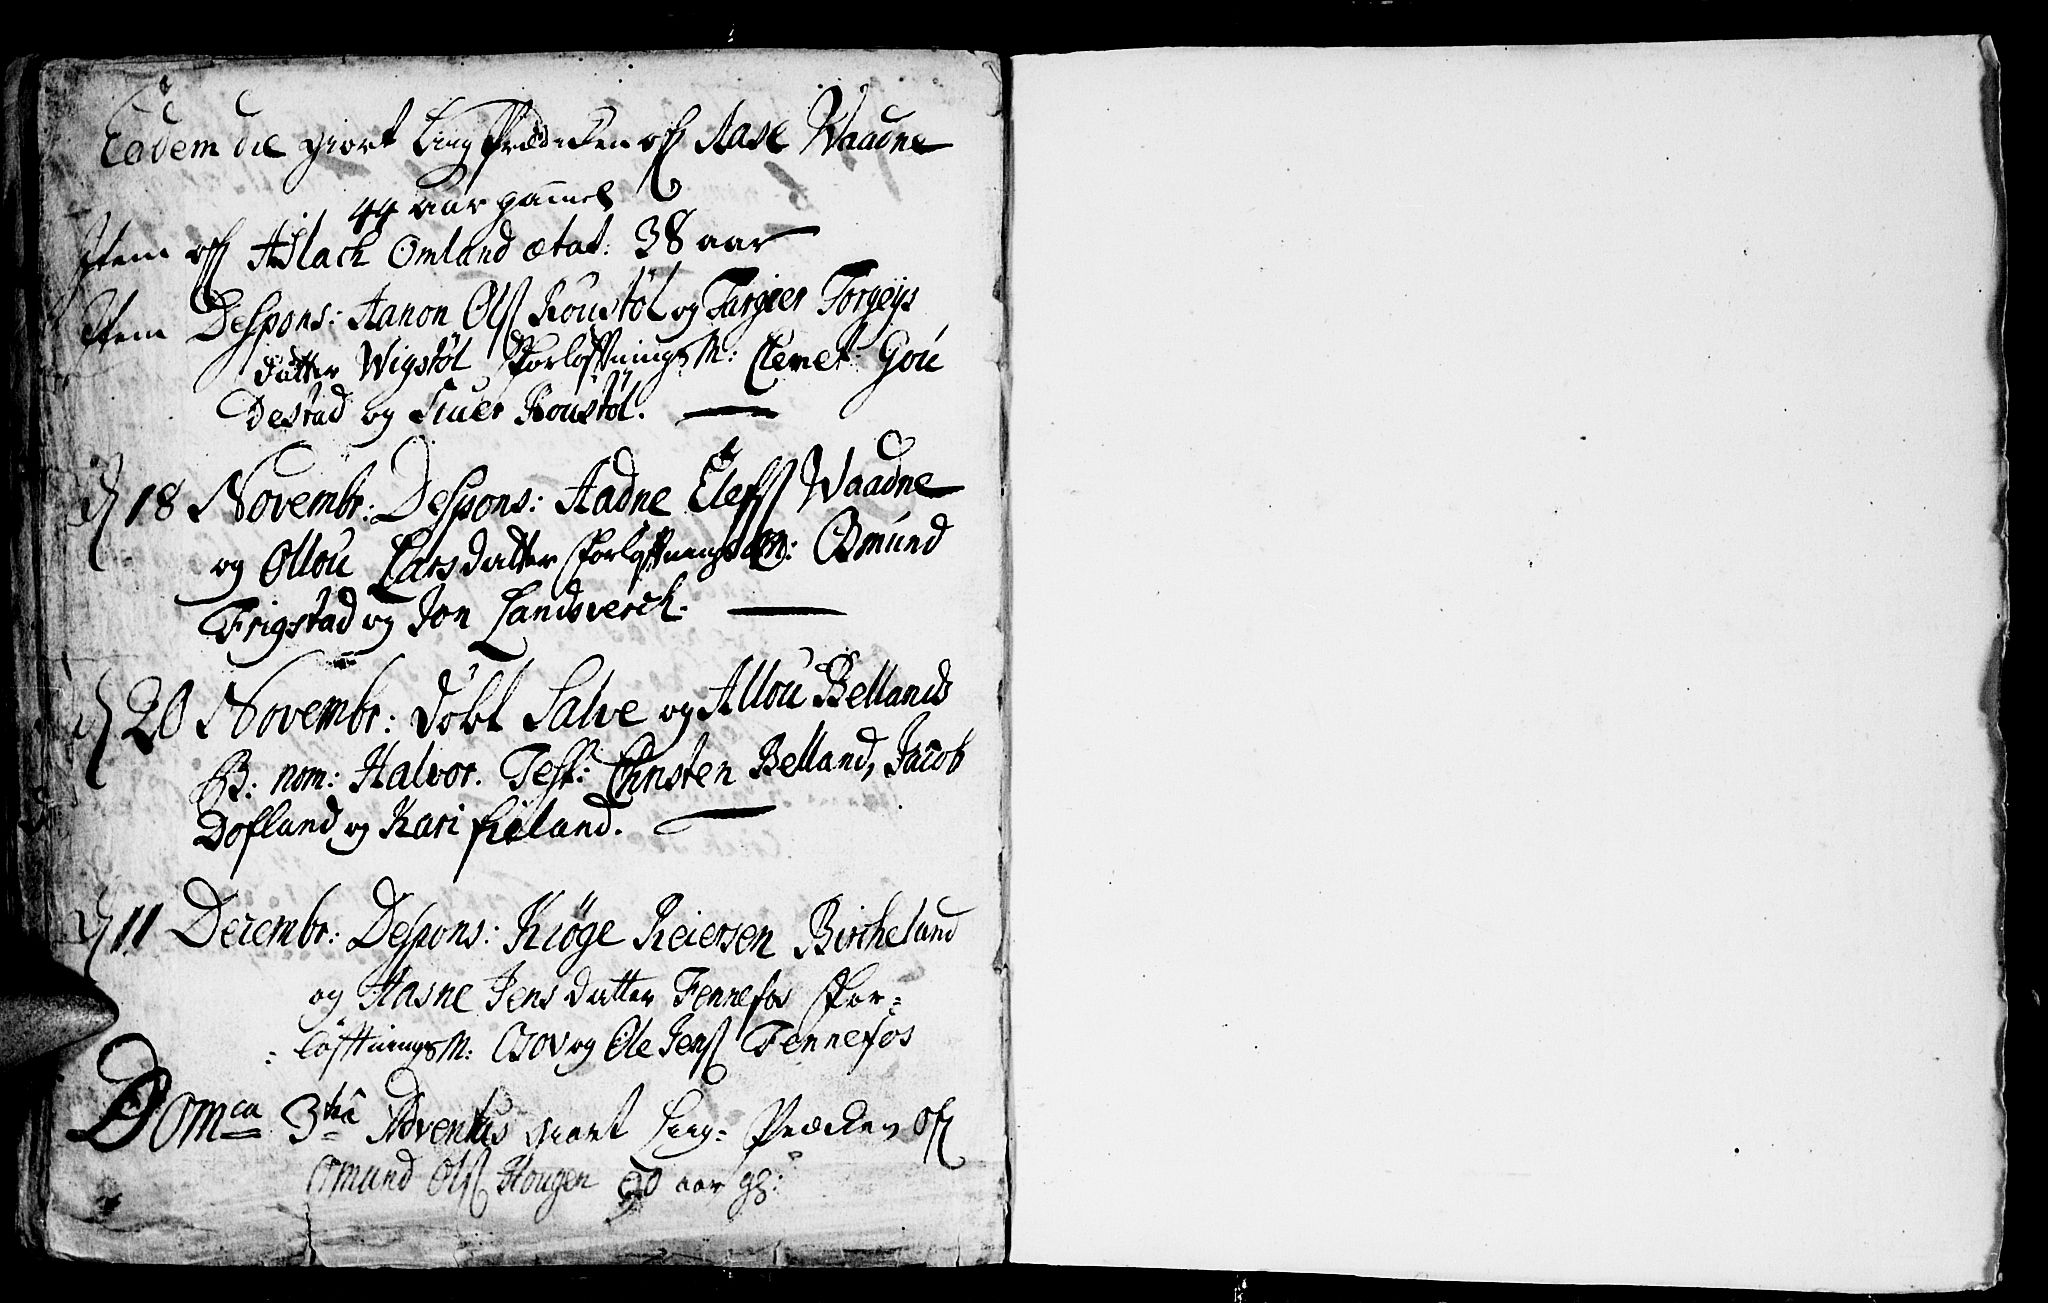 Eadem die giort Liig Prædicken off Aase Waadne
44 aar gammel
Item off Aslack Omland ætat: 38 aar
Item Despons: Aanon Olss Roustøl og Targier Torgeÿs
datter Wigstøl Forløftnings M: Elevet Gou
destad og Siuer Roustøl.
D 18 Novembr: Despons: Aadne Elefss Waadne
og Ollou Larsdatter Forløftnings M: Osmund
Frigstad og Jon Landsverck.
D 20 Novembr: døbt Salve og Allou Bellands
B: nom: Halvor. Test: Christen Belland, Jacob
Dofland og Kari fieland.
D 11 Decembr: Despons: Kiøge Reiersen Bircheland
og Aasne Jens datter Fennefos For=
= løftnings M: Osov og Ole Jenss Fennefos
Domca 3tia Adventus giort Liig= Præcken off
Omund Olss Hougen 90 aar gl: